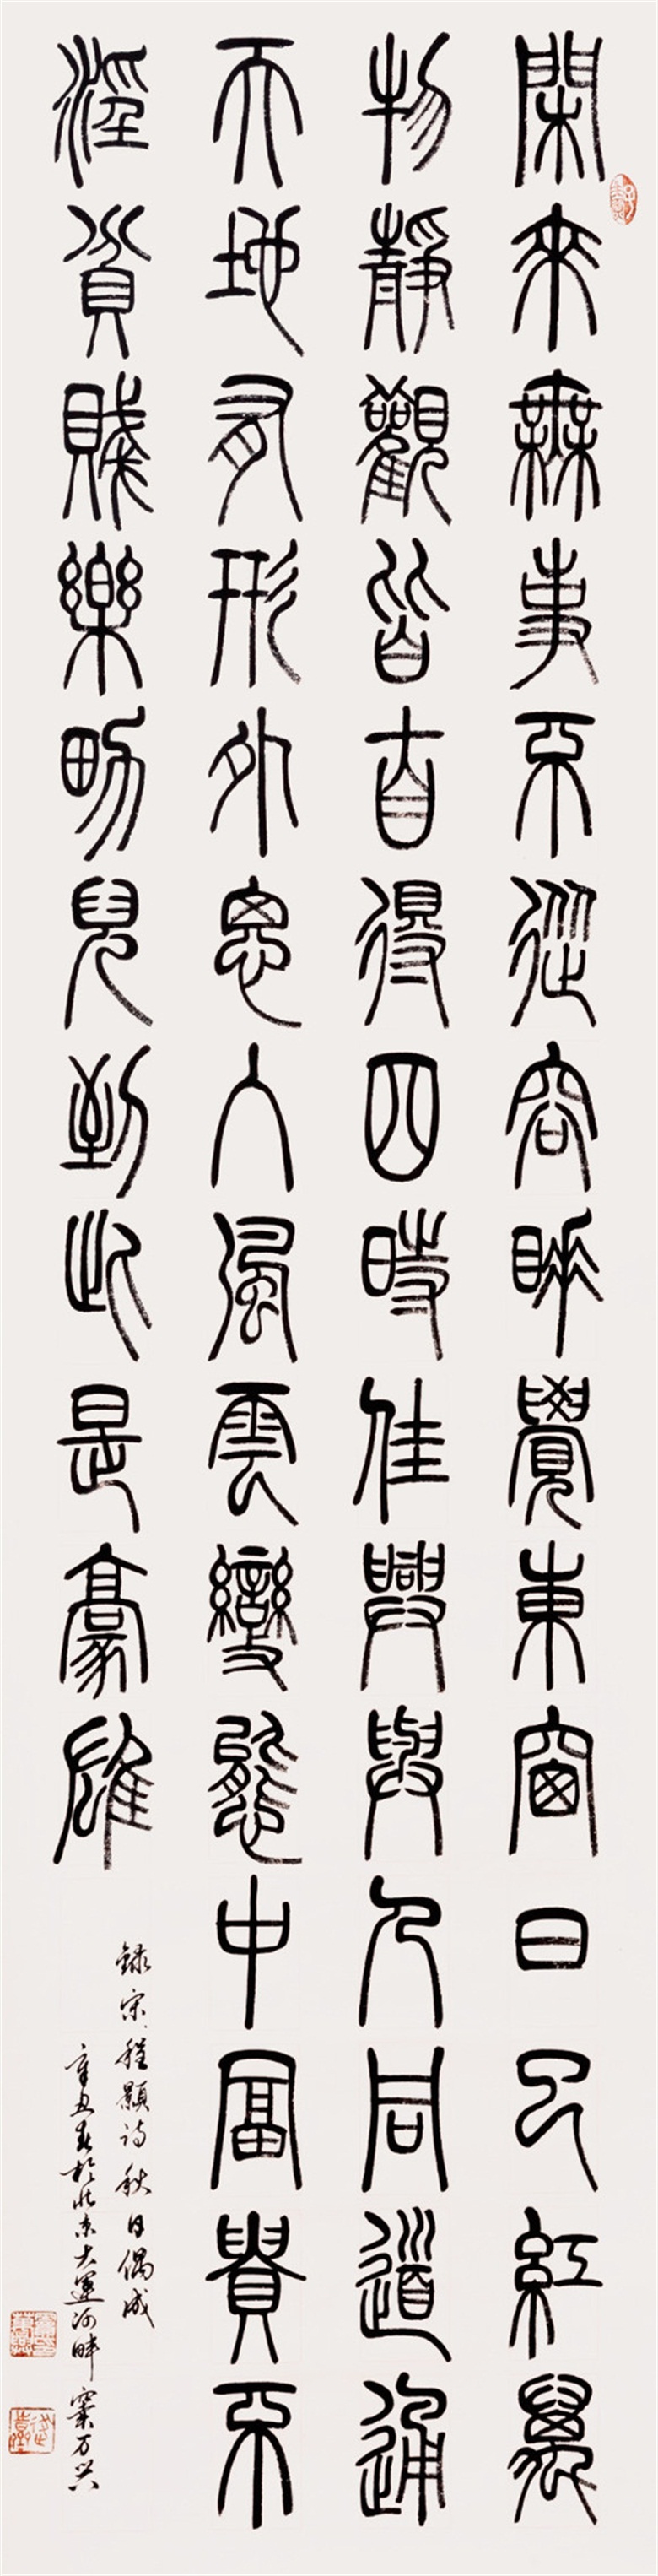 閑來無事不從容睡覺東窗日已紅萬
物靜觀皆自得四時佳興與人同道通
天地有形外思入風雲變態中富貴不
淫貧賤樂男兒到此是豪雄
錄宋程顥詩秋日偶成
辛丑春於北京大運河畔 窦万兴